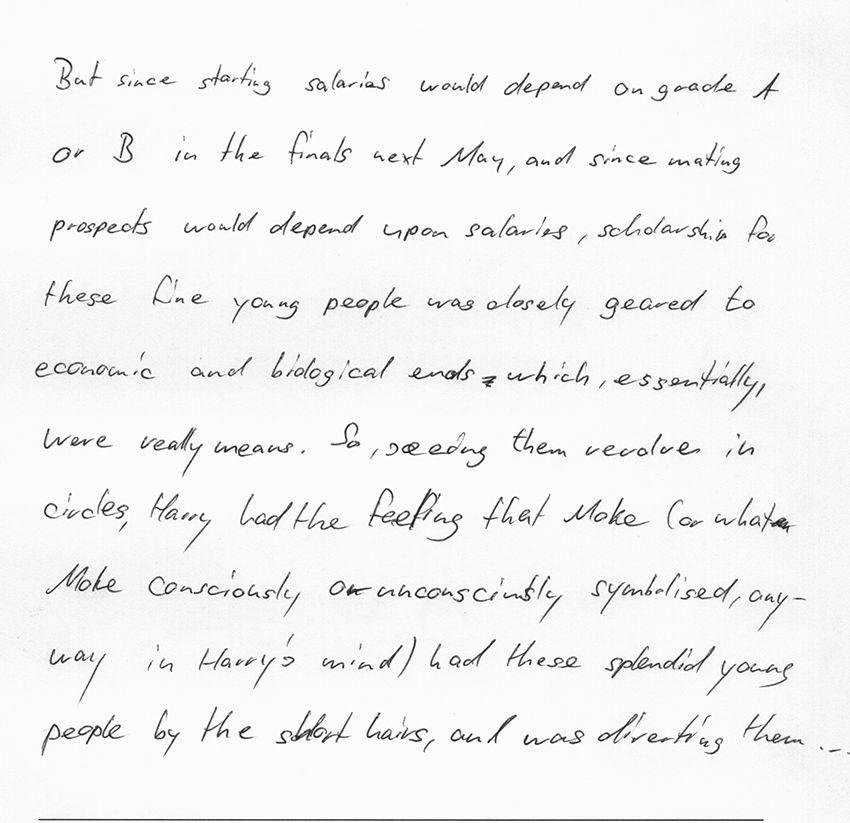 But since starting salaries would depend on grade A
or B in the finals next May, and since mating
prospects would depend upon salaries, scholarship for
these fine young people was closely geared to
economic and biological ends - which, essentially,
were really means. So, seeing them revolve in
circles, Harry had the feeling that Moke (or what
Moke consciously or unconsciously symbolised, any-
way in Harry's mind) had these splendid young
people by the short hairs, and was directing them...